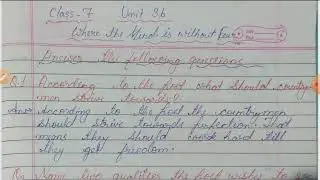 Class-7 Unit 3b
Where the Mind is without Fear
Answer the following questions
Q.1 According to the poet what should country
men strive towards?
Ans→ According to the poet the countrymen
should strive towards perfection. That
means they should work hard till
they get freedom.
Q2 Some line qualities the poet wishes to